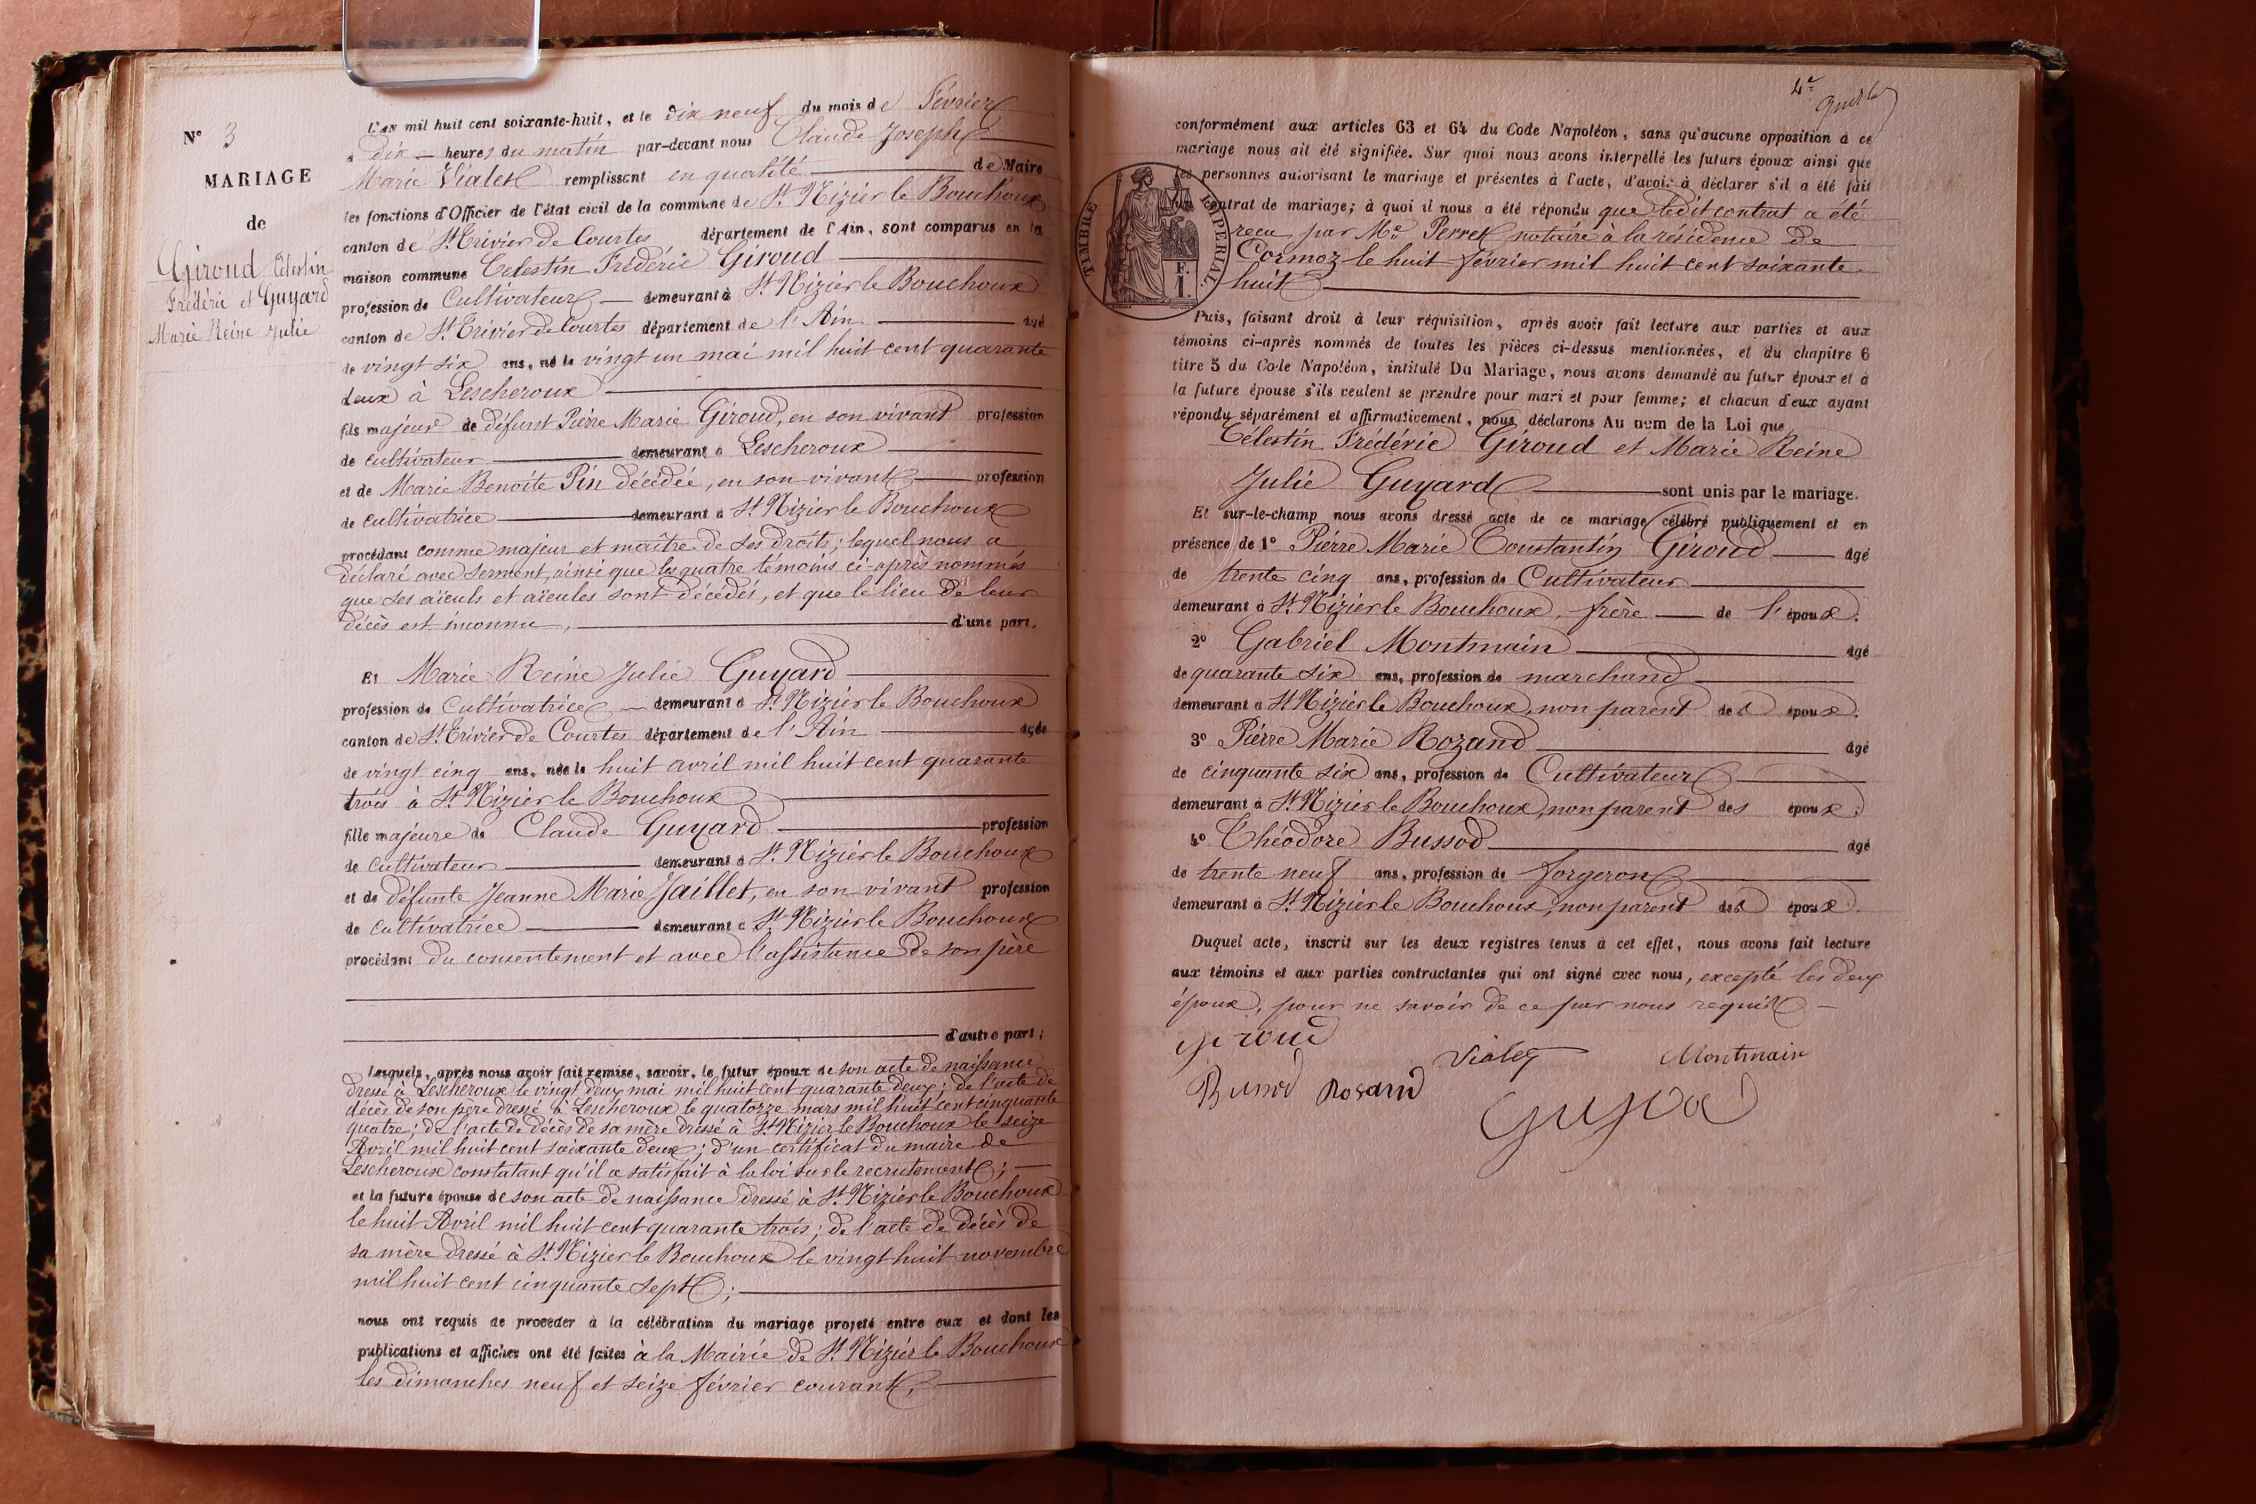 N° 3
MARIAGE
de
Giroud Célestin
Frédéric et Guyard
Marie Reine Julie
L'an mil huit cent soixante-huit, et le dix neuf du mois de Février
à dix heures du matin par-devant nous Claude Joseph
Marie Vialet remplissant en qualité de Maire
les fonctions d'Officier de l'état civil de la commune de St Nizier le Bouchoux
canton de St Trivier de Courtes département de l'Ain, sont comparus en la
maison commune Célestin Frédéric Giroud
profession de Cultivateur demeurant à St Nizier le Bouchoux
canton de St Trivier de Courtes département de l'Ain âgé
de vingt six ans, né le vingt un mai mil huit cent quarante
deux à Lescheroux
fils majeur de défunt Pierre Marie Giroud, en son vivant profession
de cultivateur demeurant à Lescheroux
et de Marie Benoite Pin décédée, en son vivant profession
de cultivatrice demeurant à St Nizier le Bouchoux
procédant comme majeur et maître de ses droits; lequel nous a
déclaré avec serment, ainsi que les quatre témoins ci-après nommés
que ses aïeuls et aïeules sont décédés, et que le lieu de leur
décès est inconnu, d'une part.
Et Marie Reine Julie Guyard
profession de Cultivatrice demeurant à St Nizier le Bouchoux
canton de St Trivier de Courtes département de l'Ain âgée
de vingt cinq ans, née le huit avril mil huit cent quarante
trois à St Nizier le Bouchoux
fille majeure de Claude Guyard profession
de cultivateur demeurant à St Nizier le Bouchoux
et de défunte Jeanne Marie Jaillet, en son vivant profession
de cultivatrice demeurant à St Nizier le Bouchoux
procédant du consentement et avec l'assistance de son père
d'autre part;
Lesquels, après nous avoir fait remise, savoir, le futur époux de son acte de naissance
dressé à Lescheroux le vingt deux mai mil huit cent quarante deux; de l'acte de
décès de son père dressé à Lescheroux le quatorze mars mil huit cent cinquante
quatre; de l'acte de décès de sa mère dressé à St Nizier le Bouchoux le seize
Avril mil huit cent soixante deux; d'un certificat du maire de
Lescheroux constatant qu'il a satisfait à la loi sur le recrutement;
et la future épouse de son acte de naissance dressé à St Nizier le Bouchoux
le huit Avril mil huit cent quarante trois; de l'acte de décès de
sa mère dressé à St Nizier le Bouchoux le vingt huit novembre
mil huit cent cinquante sept;
nous ont requis de procéder à la célébration du mariage projeté entre eux et dont les
publications et affiches ont été faites à la Mairie de St Nizier le Bouchoux
les dimanches neuf et seize février courant,
conformément aux articles 63 et 64 du Code Napoléon, sans qu'aucune opposition à ce
mariage nous ait été signifiée. Sur quoi nous avons interpellé les futurs époux ainsi que
les personnes autorisant le mariage et présentes à l'acte, d'avoir à déclarer s'il a été fait
contrat de mariage; à quoi il nous a été répondu que ledit contrat a été
reçu par Me Perret notaire à la résidence de
Cormoz le huit février mil huit cent soixante
huit
TIMBRE IMPERIAL.
F.
1.
Puis, faisant droit à leur réquisition, après avoir fait lecture aux parties et aux
témoins ci-après nommés de toutes les pièces ci-dessus mentionnées, et du chapitre 6
titre 5 du Code Napoléon, intitulé Du Mariage, nous avons demandé au futur époux et à
la future épouse s'ils veulent se prendre pour mari et pour femme; et chacun d'eux ayant
répondu séparément et affirmativement, nous déclarons Au nom de la Loi que
Célestin Frédéric Giroud et Marie Reine
Julie Guyard sont unis par le mariage.
Et sur-le-champ nous avons dressé acte de ce mariage célébré publiquement et en
présence de 1° Pierre Marie Constantin Giroud âgé
de trente cinq ans, profession de Cultivateur
demeurant à St Nizier le Bouchoux, frère de l'époux.
2° Gabriel Montmain âgé
de quarante six ans, profession de marchand
demeurant à St Nizier le Bouchoux, non parent des époux.
3° Pierre Marie Rozand âgé
de cinquante six ans, profession de Cultivateur
demeurant à St Nizier le Bouchoux, non parent des époux;
4° Théodore Bussod âgé
de trente neuf ans, profession de forgeron
demeurant à St Nizier le Bouchoux, non parent des époux.
Duquel acte, inscrit sur les deux registres tenus à cet effet, nous avons fait lecture
aux témoins et aux parties contractantes qui ont signé avec nous, excepté les deux
époux, pour ne savoir de ce par nous requis
Giroud
Vialet Montmain
Bussod Rosand